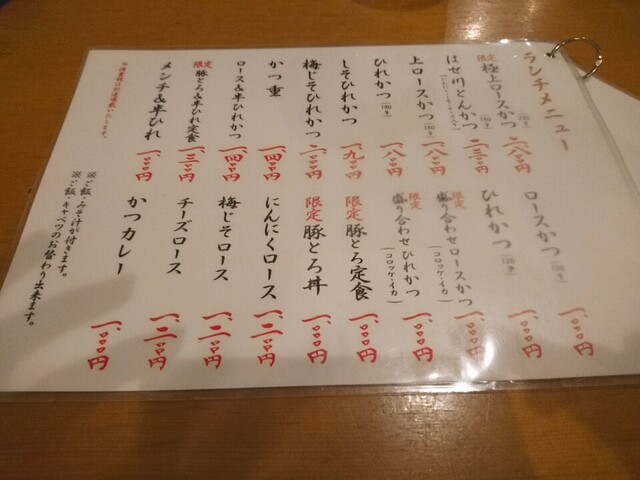 ランチメニュー
限定 極上ロースかつ 二、八〇〇円
はせ川とんかつ 二、三〇〇円
上ロースかつ 一、八〇〇円
ひれかつ 一、八〇〇円
しそひれかつ 一、九〇〇円
梅じそひれかつ 二、〇〇〇円
かつ重 一、四〇〇円
ロース&半ひれかつ 一、四〇〇円
限定 豚とろ&半ひれ定食 一、三〇〇円
メンチ&半ひれ 一、〇〇〇円
※消費税は別途頂戴いたします。
ロースかつ 一、〇〇〇円
ひれかつ 一、〇〇〇円
限定 盛り合わせロースかつ (コロッケ・イカ) 一、〇〇〇円
限定 盛り合わせひれかつ (コロッケ・イカ) 一、〇〇〇円
限定 豚とろ定食 一、〇〇〇円
限定 豚とろ丼 一、〇〇〇円
にんにくロース 一、二〇〇円
梅じそロース 一、二〇〇円
チーズロース 一、二〇〇円
かつカレー 一、〇〇〇円
※ご飯・みそ汁が付きます。
※ご飯、キャベツのお替わり出来ます。